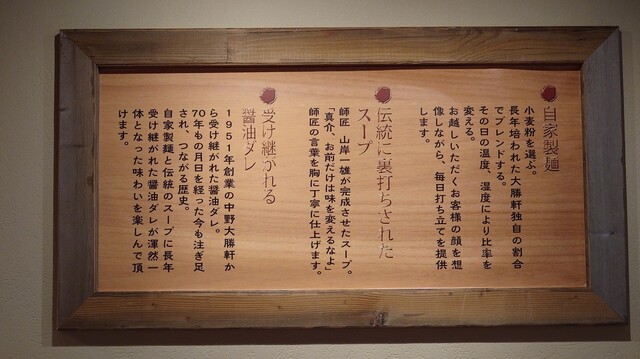 自家製麺
小麦粉を選ぶ。
長年培われた大勝軒独自の割合
でブレンドする。
その日の温度、湿度により比率を
変える。
お越しいただくお客様の顔を想
像しながら、毎日打ち立てを提供
します。
伝統に裏打ちされた
スープ
師匠 山岸一雄が完成させたスープ。
「真介、お前だけは味を変えるなよ」
師匠の言葉を胸に丁寧に仕上げます。
受け継がれる
醤油ダレ
1951年創業の中野大勝軒か
ら受け継がれた醤油ダレ。
70年もの月日を経った今も注ぎ足
され、つながる歴史。
自家製麺と伝統のスープに長年
受け継がれた醤油ダレが渾然一
体となった味わいを楽しんで頂
けます。